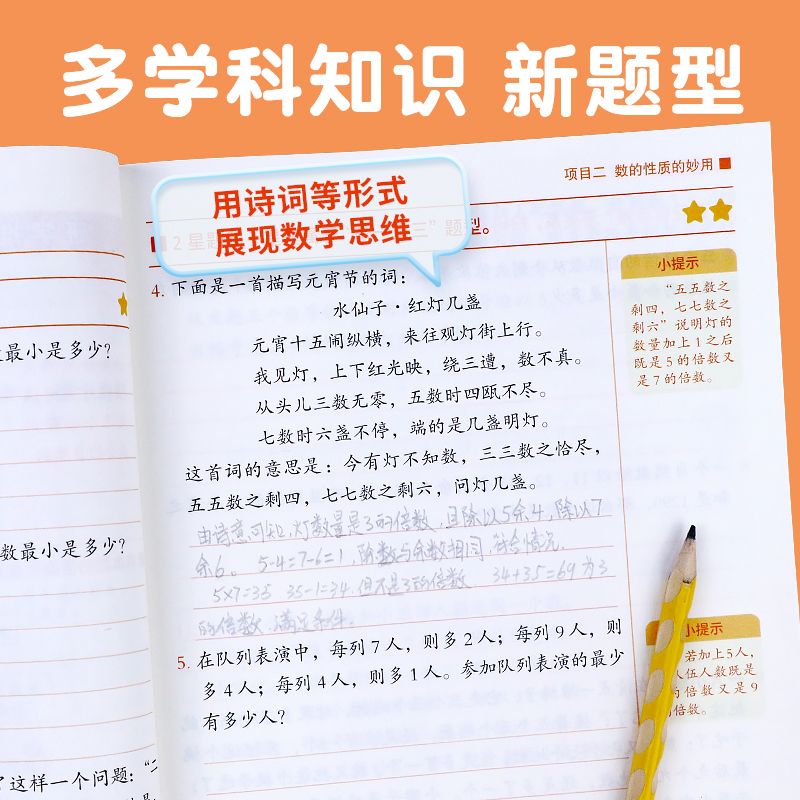 多学科知识 新题型
项目二 数的性质的妙用
用诗词等形式
展现数学思维
2星题
三”题型。
4. 下面是一首描写元宵节的词：
水仙子·红灯几盏
元宵十五闹纵横，来往观灯街上行。
我见灯，上下红光映，绕三遭，数不真。
从头儿三数无零，五数时四瓯不尽。
七数时六盏不停，端的是几盏明灯。
这首词的意思是：今有灯不知数，三三数之恰尽，
五五数之剩四，七七数之剩六，问灯几盏。
由诗意可知，灯数量是3的倍数，且除以5余4，除以7
余6。 5-4=7-6=1，除数与余数相同，符合情况。
5×7=35 35-1=34，但不是3的倍数 34+35=69 为3
的倍数，满足条件。
5. 在队列表演中，每列7人，则多2人；每列9人，则
多4人；每列4人，则多1人。参加队列表演的最少
有多少人？
小提示
“五五数之
剩四，七七数之
剩六”说明灯的
数量加上1之后
既是5的倍数又
是7的倍数。
小提示
若加上5人，
人伍人数既是
的倍数又是9
倍数。
最小是多少？
数最小是多少？
了这样一个问题：“二